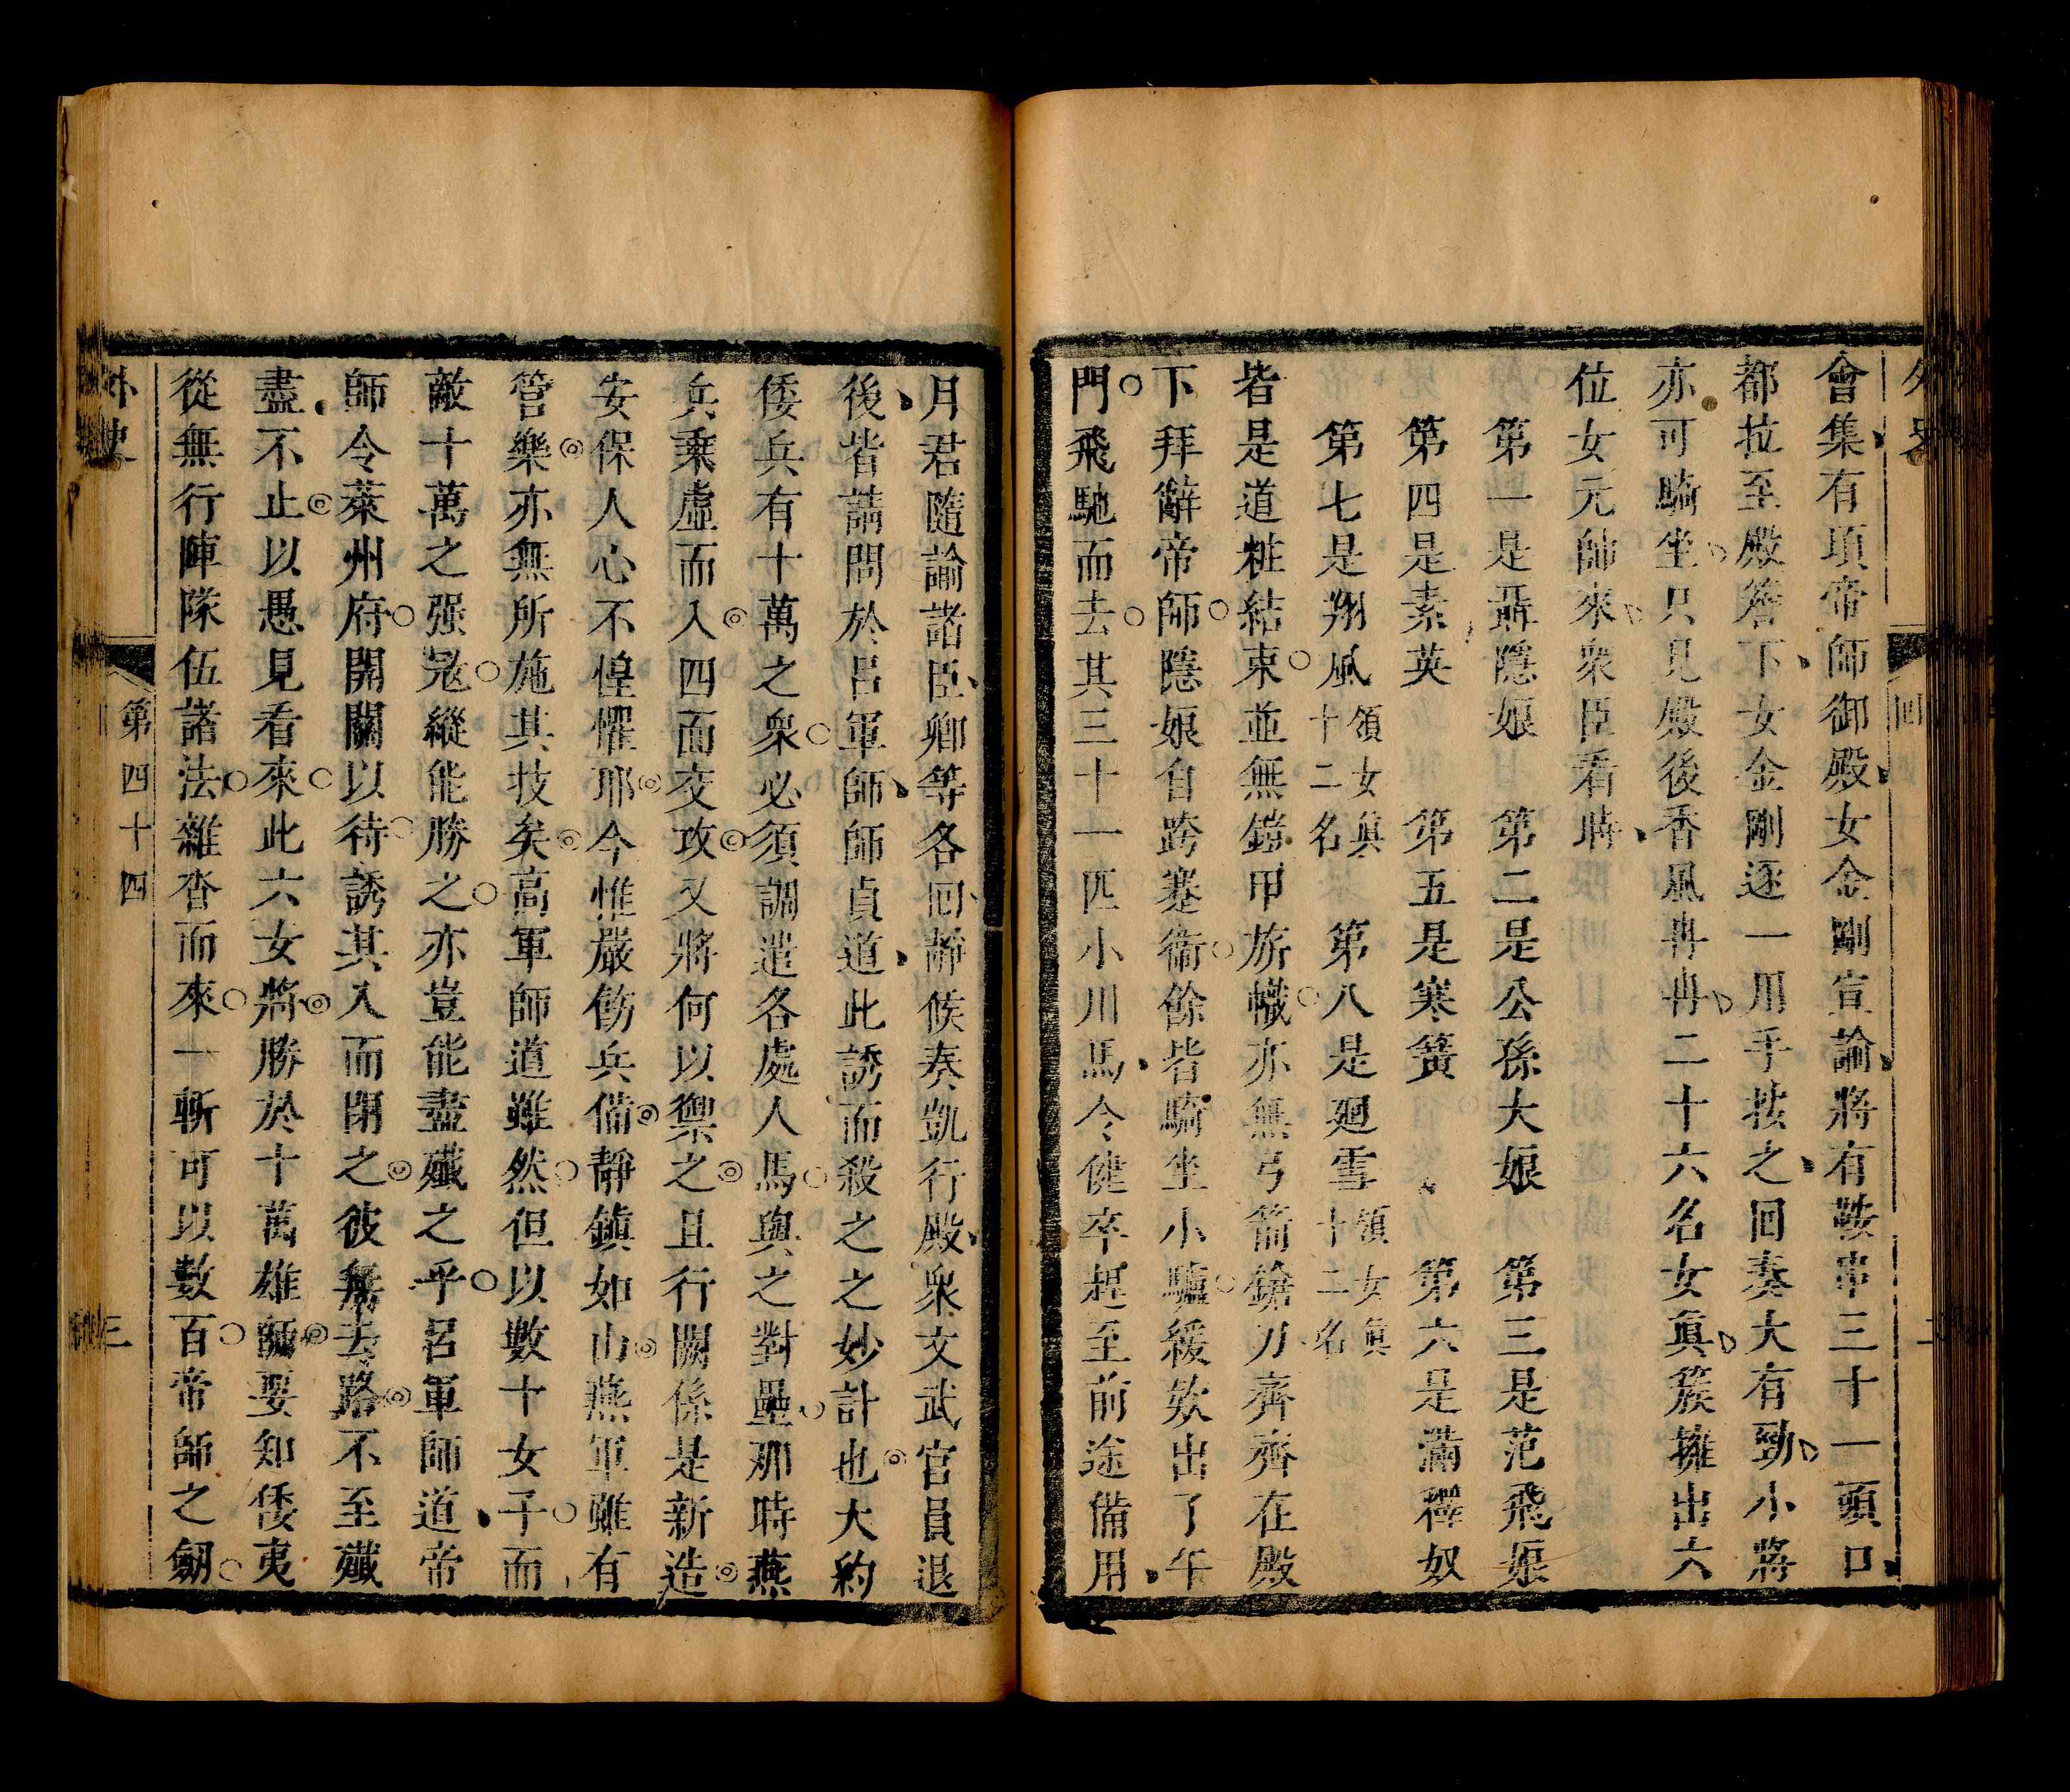 會集有項帝師御殿女金剛宣諭將有鞍串三十一頭口
都拉至殿簷下女金剛逐一用手按之回奏大有勁小將
亦可騎坐只見殿後香風冉冉二十六名女眞簇擁出六
位女元帥來衆臣看時
第一是聶隱娘　第二是公孫大娘　第三是范飛娘
第四是素英　第五是寒簧　第六是滿釋奴
第七是翔風領女眞十二名　第八是廻雪領女眞十二名
皆是道粧結束並無鎧甲旂幟亦無弓箭鎗刀齊齊在殿
下拜辭帝師隱娘自跨蹇衞餘皆騎坐小驢緩欸出了午
門飛馳而去其三十一匹小川馬令健卒趕至前途備用
月君隨諭諸臣卿等各回靜候奏凱行殿衆文武官員退
後皆請問於呂軍師師貞道此誘而殺之之妙計也大約
倭兵有十萬之衆必須調遣各處人馬與之對壘那時燕
兵乘虛而入四面交攻又將何以禦之且行闕係是新造
安保人心不惶懼耶今惟嚴飭兵備靜鎮如山燕軍雖有
管樂亦無所施其技矣高軍師道雖然但以數十女子而
敵十萬之强冦縱能勝之亦豈能盡殲之乎呂軍師道帝
師令萊州府開關以待誘其入而閉之彼無去路不至殲
盡不止以愚見看來此六女將勝於十萬雄師要知倭夷
從無行陣隊伍諸法雜沓而來一斬可以數百帝師之劔
外史
第四十四
三